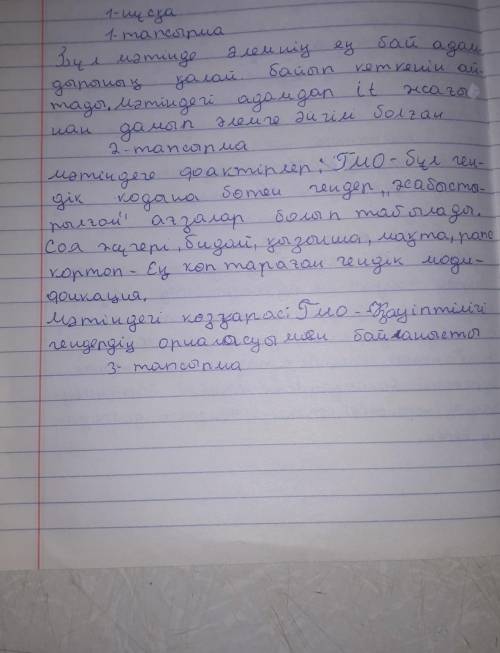 1-нұсқа
1-тапсырма
Бұл мәтінде әлемнің ең бай адам
дарының қалай байып кеткенін ай-
тады. мәтіндегі адамдар it жағы
нан дамып әлемге әйгім болған
2-тапсырма
мәтіндеге фоактірлер: ГМО - бұл ген-
дік кодына бөтен гендер ,,жабысты-
рылған" ағзалар болып табылады.
Соя жүгері, бидай, қызанша, мақта, рапс
картоп - Ең көп тараған гендік моди-
фикация.
Мәтіндегі көзқарас: Гмо - Қауіптілігі
гендердің орналасуымен байланысты
3- тапсырма